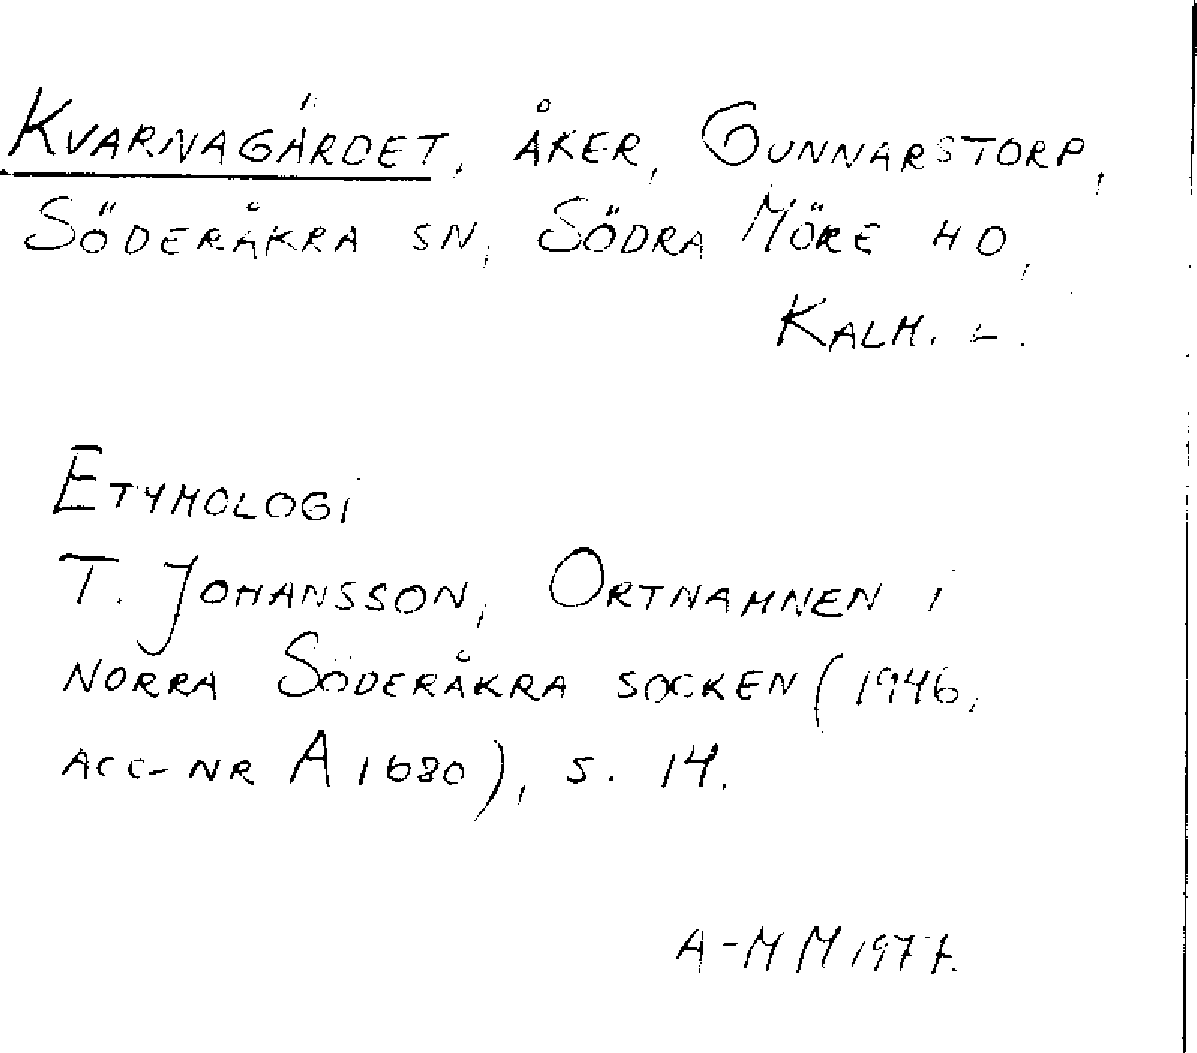 KVARNAGÄRDET, ÅKER, GUNNARSTORP,
SÖDERÅKRA SN, SÖDRA MÖRE HD,
KALM. L.
ETYMOLOGI
T. JOHANSSON, ORTNAMNEN I
NORRA SÖDERÅKRA SOCKEN (1946,
ACC-NR A 1680), S. 14.
A-MM 1977.